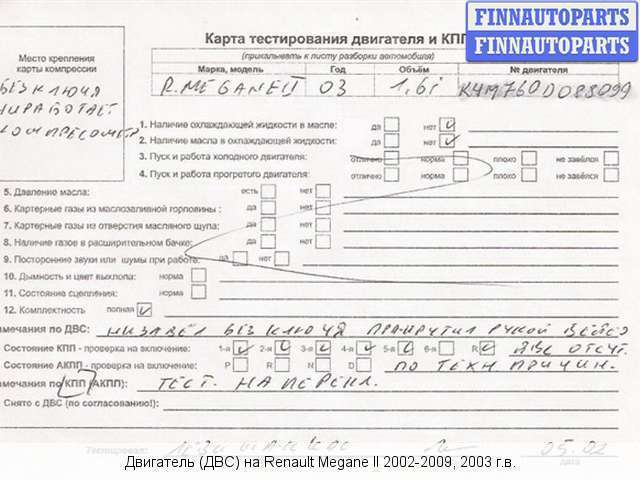 FINNAUTOPARTS
FINNAUTOPARTS
Карта тестирования двигателя и КПП
(прикалывать к листу разборки автомобиля)
Место крепления
карты компрессии
БЕЗ КЛЮЧЯ
НИРАБОТАЕТ
КОМПРЕСОМЕТР
Марка, модель Год Объём № двигателя
R.MEGANEII 03 1,6i K4M760D088099
1. Наличие охлаждающей жидкости в масле: да нет
2. Наличие масла в охлаждающей жидкости: да нет
3. Пуск и работа холодного двигателя: отлично норма плохо не завёлся
4. Пуск и работа прогретого двигателя: отлично норма плохо не завёлся
5. Давление масла: есть нет
6. Картерные газы из маслозаливной горловины : да нет
7. Картерные газы из отверстия масляного щупа: да нет
8. Наличие газов в расширительном бачке: да нет
9. Посторонние звуки или шумы при работе: да нет
10. Дымность и цвет выхлопа: норма
11. Состояние сцепления: норма
12. Комплектность полная
мечания по ДВС: НИЗАВЁЛ БЕЗ КЛЮЧЯ ПРАКРУТИЛ РУКОЙ
Состояние КПП - проверка на включение: 1-я 2-я 3-я 4-я 5-я 6-я R ДВС ОТСУТ.
Состояние АКПП - проверка на включение: P R N D ПО ТЕХН ПРИЧИН.
мечания по КПП (АКПП): ТЕСТ. НА ПЕРЕКЛ.
Снято с ДВС (по согласованию!):
Тестировал: 05.02
дата
Двигатель (ДВС) на Renault Megane II 2002-2009, 2003 г.в.